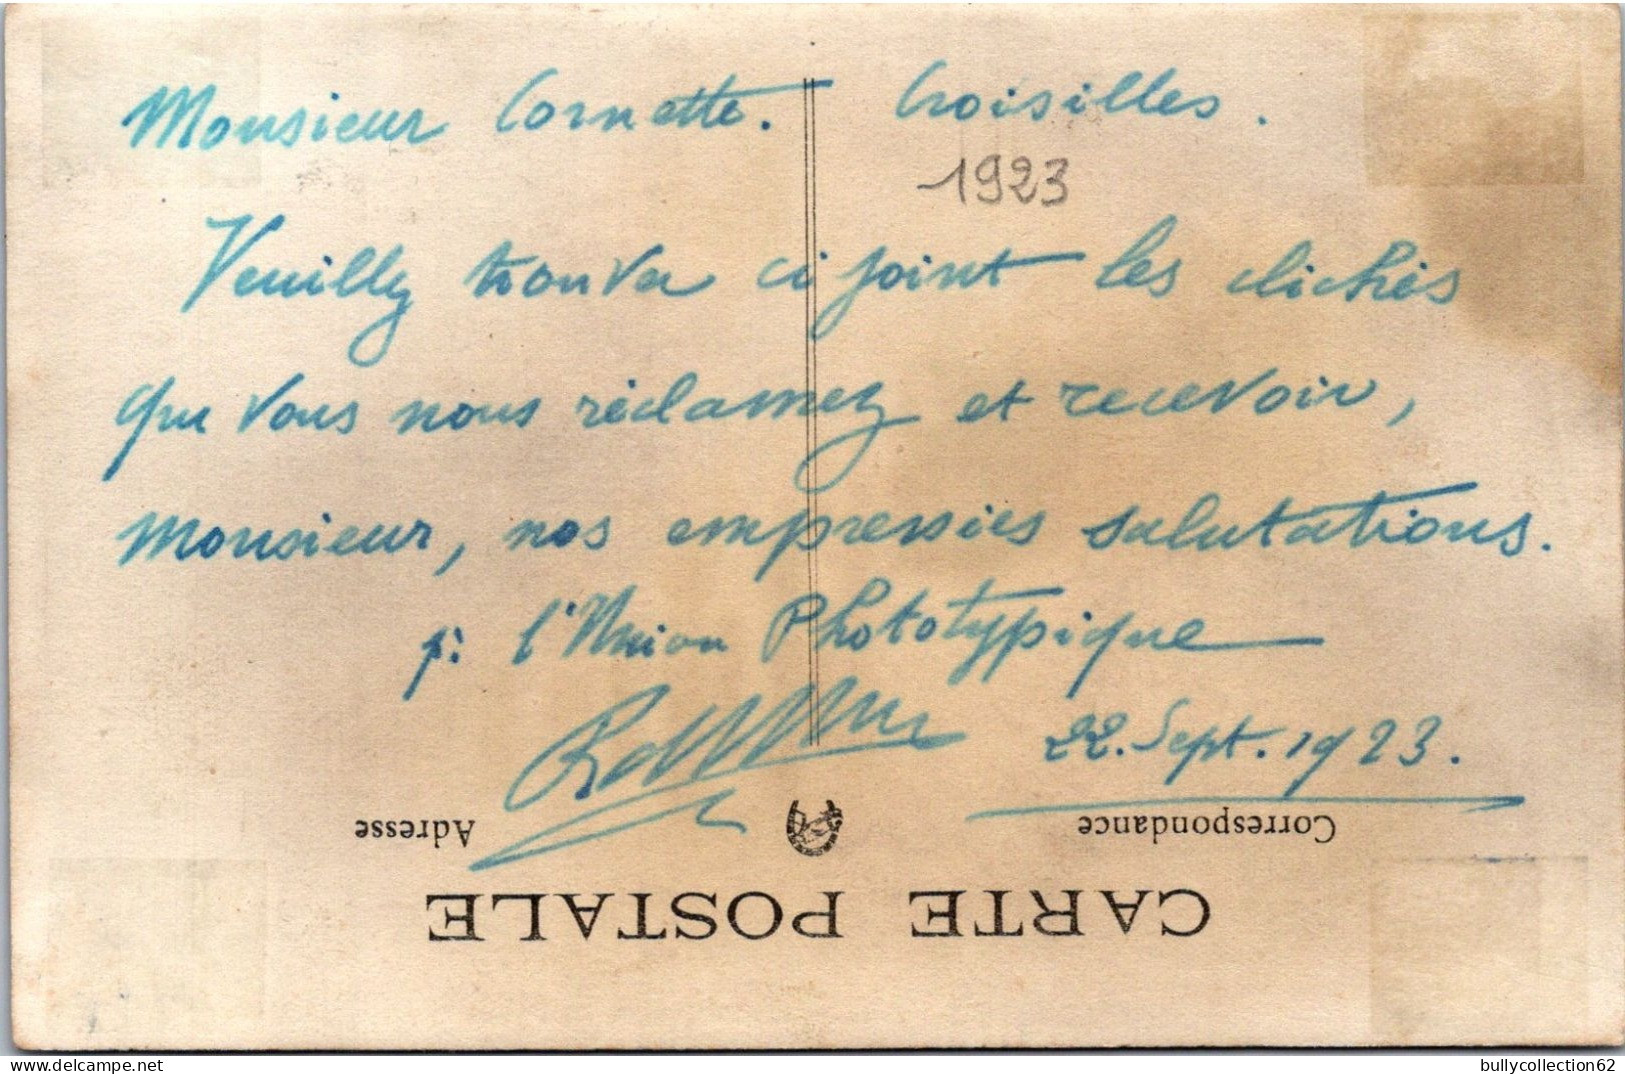 Monsieur Cornette. Croisilles.
1923
Veuillez trouver ci joint les clichés
que vous nous réclamez et recevoir,
Monsieur, nos empressées salutations.
p: l'Union Phototypique
22. Sept. 1923.
Adresse Correspondance
CARTE POSTALE
bullycollection62